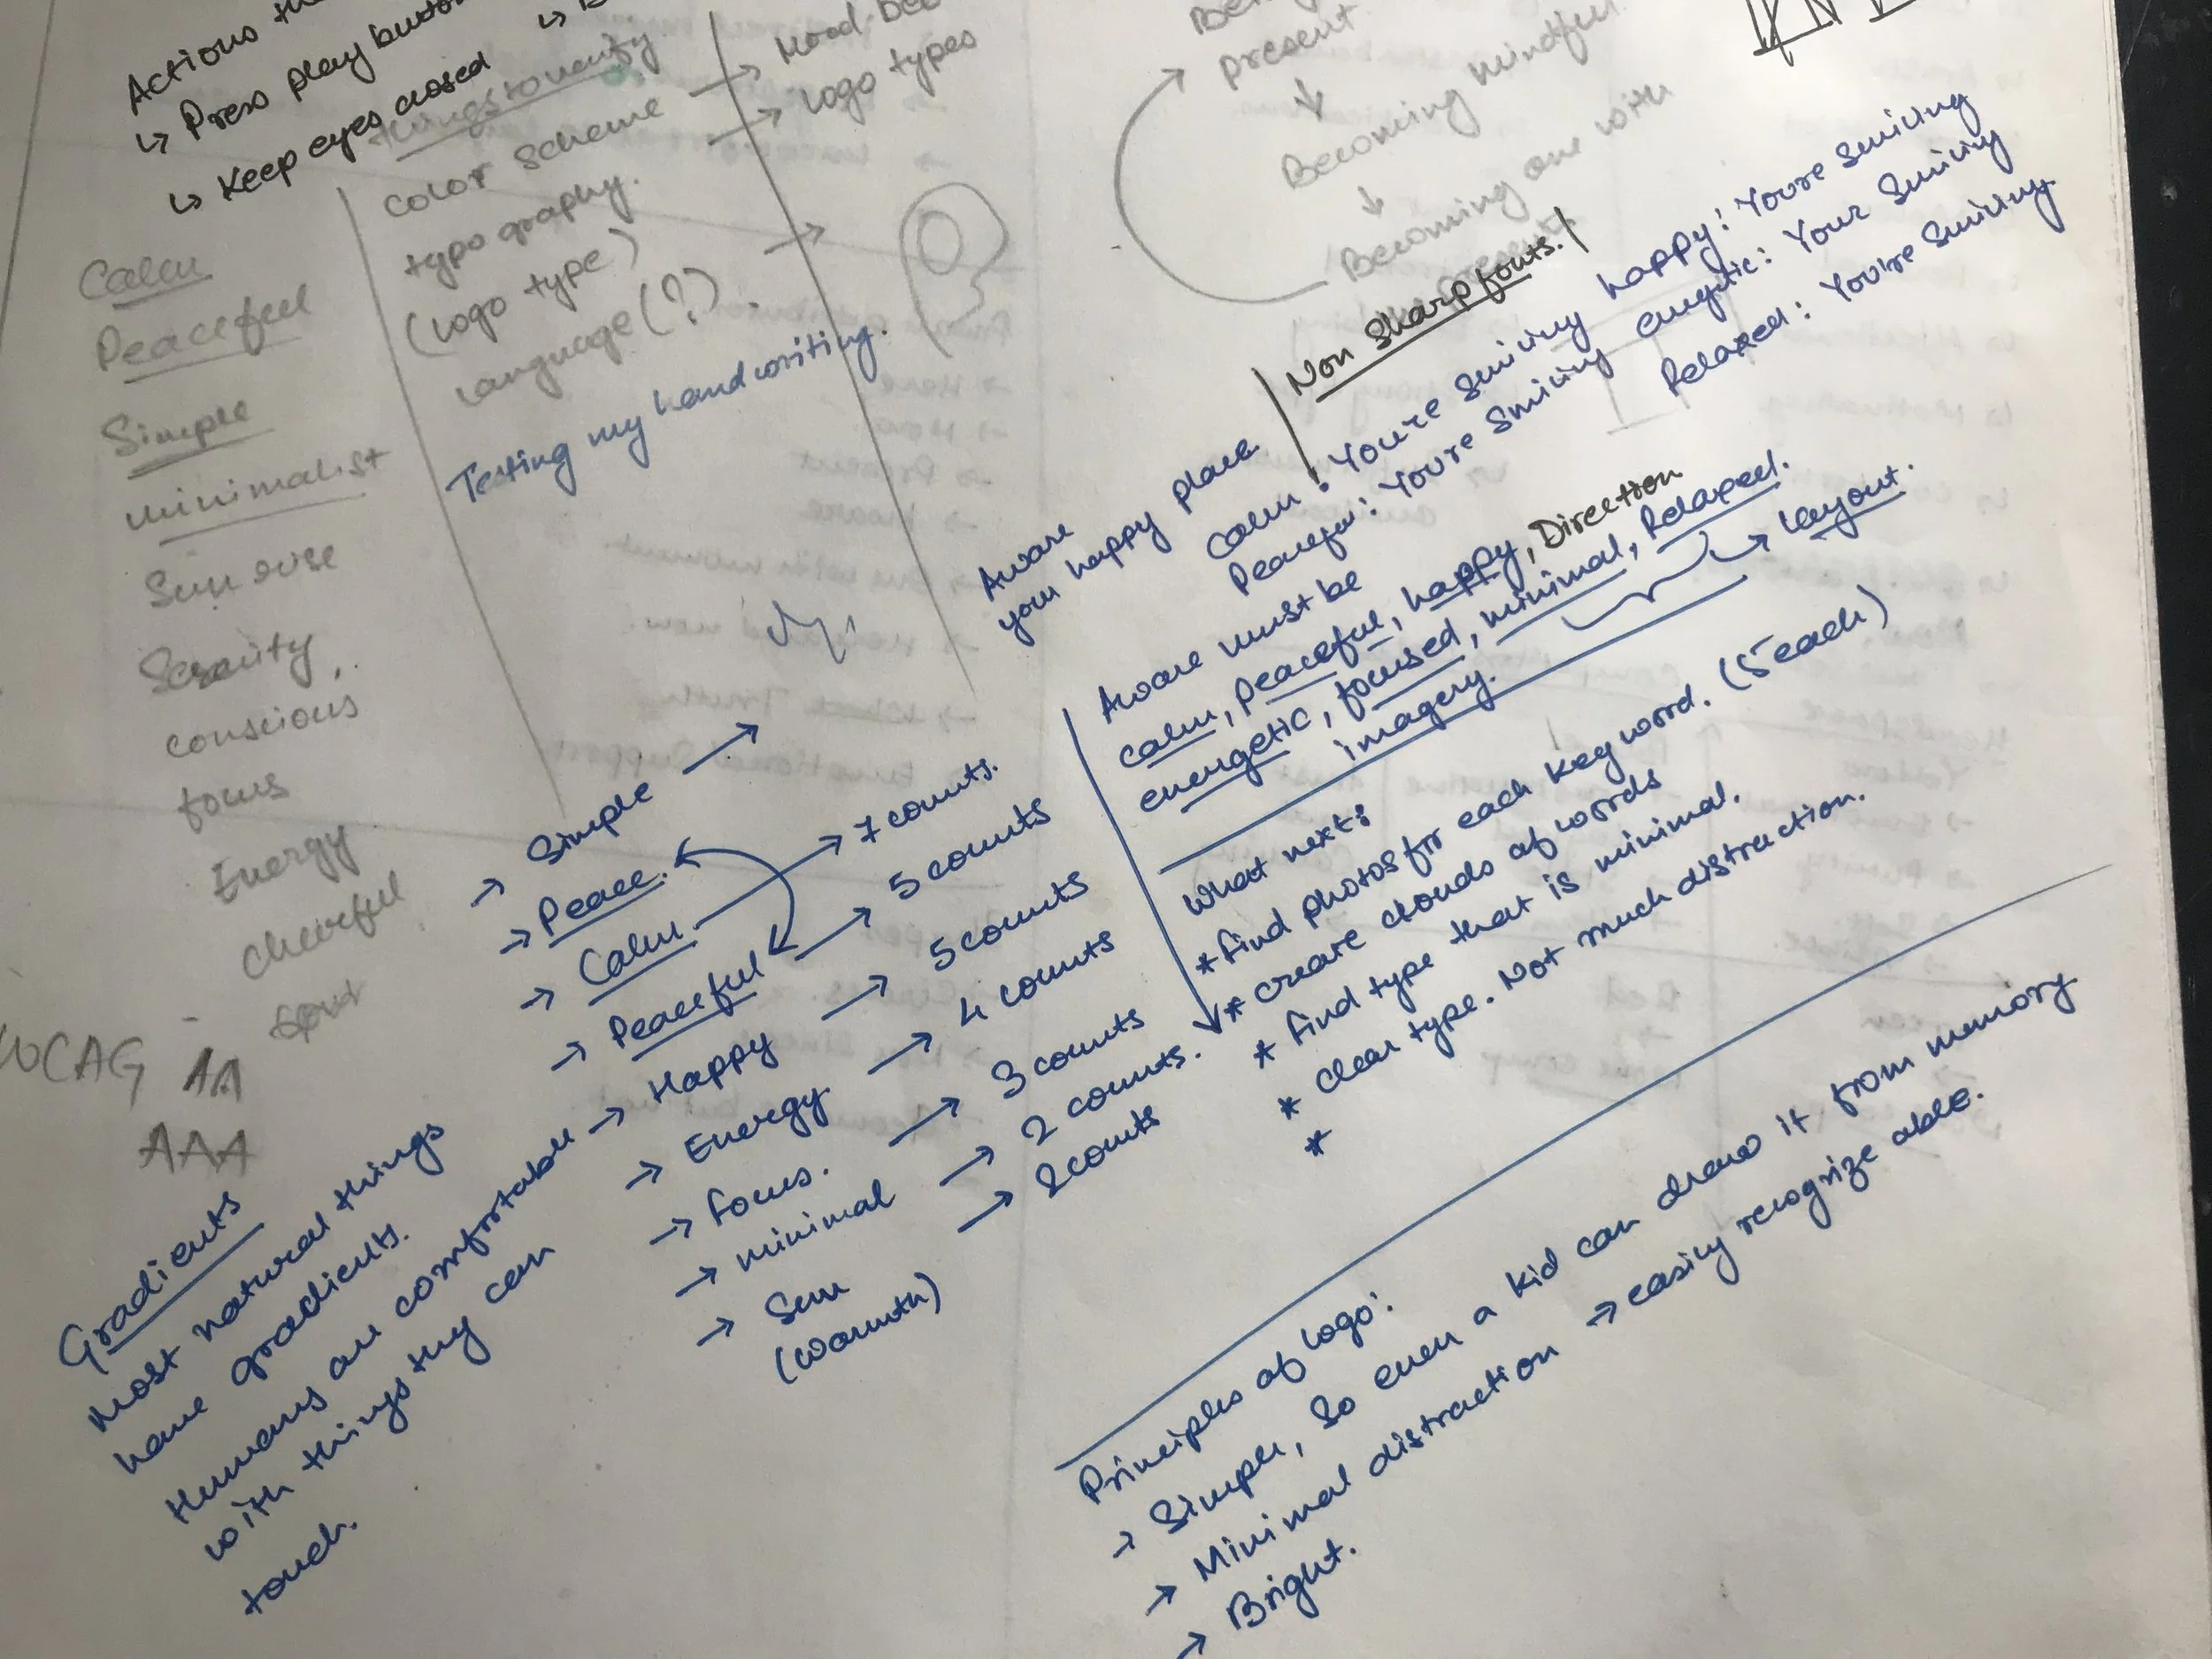 Actions
↳ Press play button
↳ Keep eyes closed
things to verify
Color scheme →
typography. →
(logo type)
language(?). →
Mood
logo types
Testing my handwriting.
Calm
Peaceful
Simple
minimalist
Sun rise
conscious
focus
Energy
cheerful
WCAG - AA
AAA
present
↓
Becoming mindful
↓
Becoming one with
present
Non Sharp fonts.
Aware
your happy place
Calm: You're smiling happy: You're smiling
Peaceful: You're smiling energetic: Your smiling
Relaxed: You're smiling.
Aware must be
calm, peaceful, happy, Direction
energetic, focused, minimal, Relaxed.
imagery. → layout.
What next:
* find photos for each keyword. (5 each)
* create clouds of words
* find type that is minimal.
* clear type. Not much distraction.
*
→ Simple →
→ Peace.
→ Calm → 7 counts.
→ Peaceful → 5 counts
→ Happy → 5 counts
→ Energy → 4 counts
→ focus. → 3 counts
→ minimal → 2 counts.
→ Sun → 2 counts
(warmth)
Gradients
Most natural things
have gradients.
Humans are comfortable
with things they can
touch.
Principles of logo:
→ Simple, So even a kid can draw it from memory
→ Minimal distraction → easily recognize able.
→ Bright.